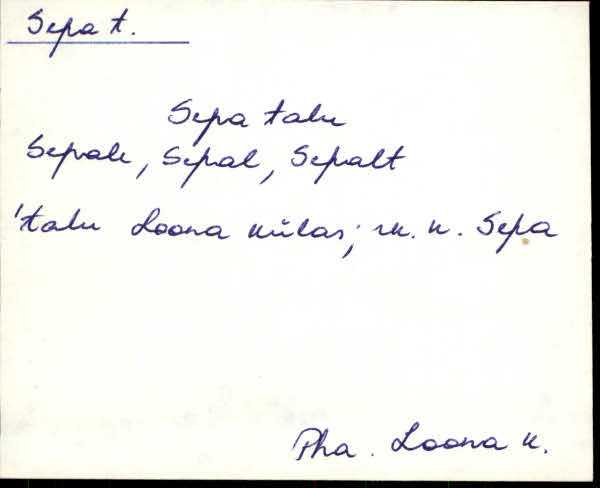 Sepa t.
Sepa talu
Sepale, Sepal, Sepalt
'talu Loona külas; rk. k. Sepa
Pha. Loona k.